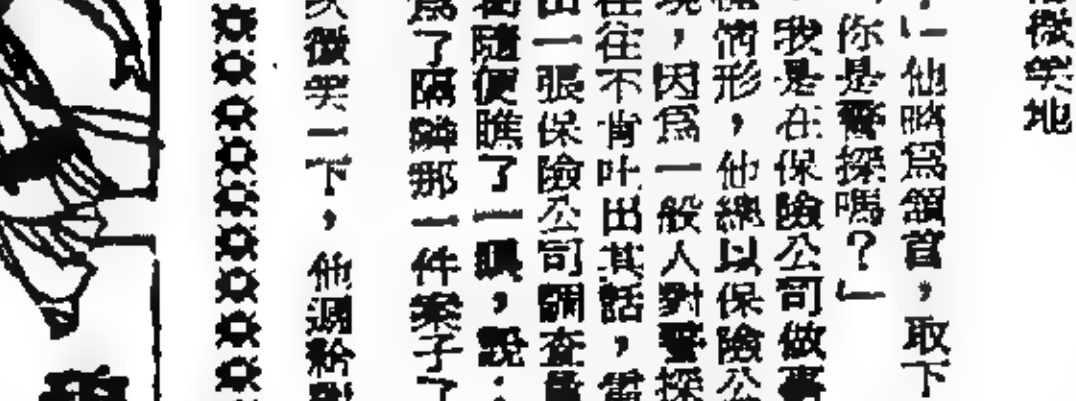 微笑地
他略爲頷首，取下
你是警探嗎？」
我是在保險公司做事
情形，他總以保險公
，因爲一般人對警探
往往不肯吐出其話，
出一張保險公司調查員
隨便瞧了一瞧，說：
爲了隔鄰那一件案子了
微笑一下，他